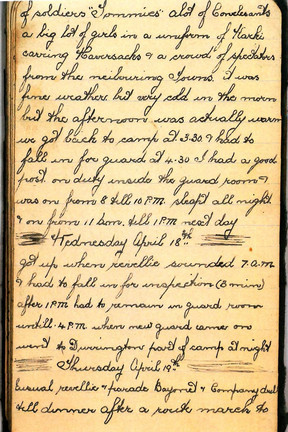 of soldiers "Tommies" a lot of Conclesants
a big lot of girls in a uniform of Karki
carring Haversacks & a crowd of spectators
from the neibouring Towns. it was
fine weather but very cold in the morn
but the afternoon was actually warm
we got back to camp at 3.30 & had to
fall in for guard at 4.30 I had a good
post on duty inside the guard room &
was on from 8 till 10 P.M. slept all night
& on from 11 a.m. till 1 P.M next day
Wednesday April 18th
got up when revellie sounded 7. a.m
& had to fall in for inspection (8 min)
after 1 P.M had to remain in guard room
untill 4 P.M when new guard came on
went to Durrington part of camp at night
Thursday April 19th
usual revellie & parade Bayonet & Company drill
till dinner after a route march to